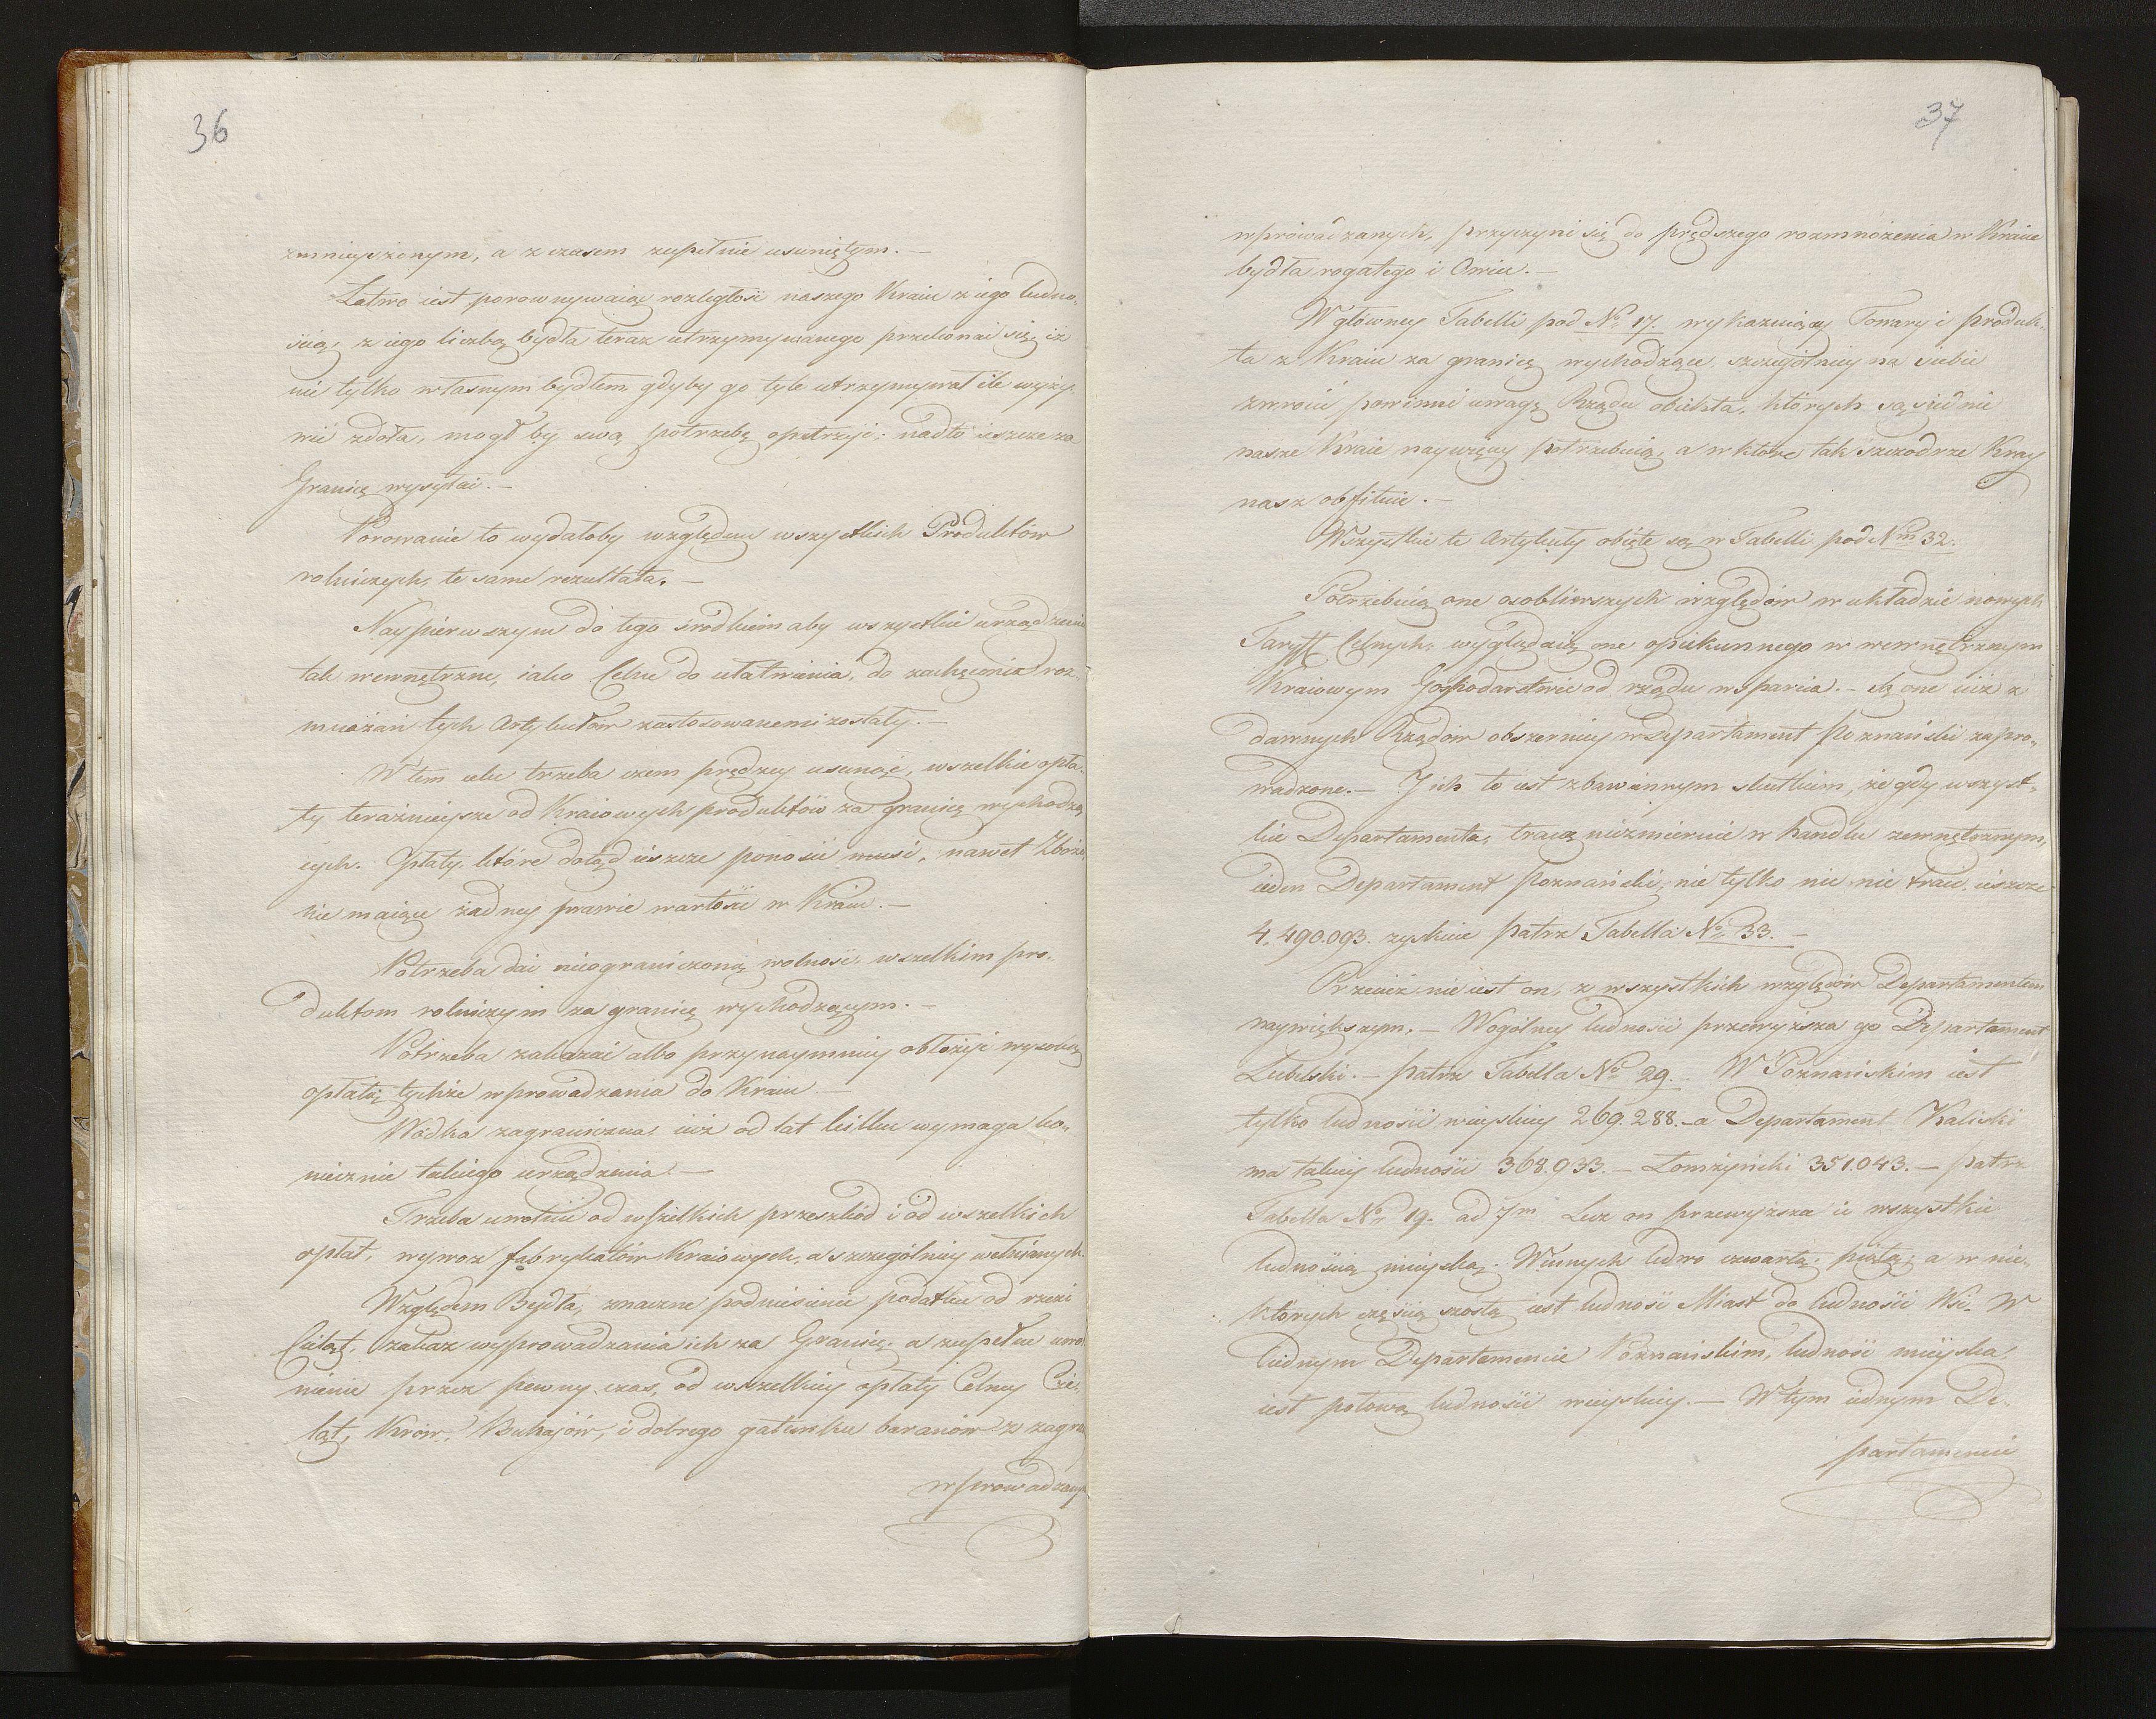 36
zmnieyszonym, a z czasem zupełnie usuniętym. —
Łatwo iest porownywaiąc rozległość naszego Kraiu z iego ludno„
ścią, z iego liczbą bydła teraz utrzymywanego przekonać się iż
nie tylko własnym bydłem gdyby go tyle utrzymywał ile wyży„
wić zdoła, mogł by swą potrzebę opatrzyć; nadto ieszcze za
Granicę wysyłać. —
Porowanie to wydałoby względem wszystkich Produktów
rolniczych, te same rezultata. —
Naypierwszym do tego środkiem aby wszystkie urządzenia
tak wewnętrzne, iako Celne do ułatwiania, do zachęcenia roz„
mnażań tych Artykułów zastosowanemi zostały. —
W tem celu trzeba czem prędzey usunąć, wszelkie opła„
ty teraźnieysze od Kraiowych produktów za granicę wychodzą„
cych. Opłaty, które dotąd ieszcze ponosić musi, nawet Zboże,
nie maiące żadney prawie wartości w Kraiu. —
Potrzeba dać nieograniczoną wolność, wszelkim pro„
duktom rolniczym za granicę wychodzącym. —
Potrzeba zakazać albo przynaymniey obłożyć wysoką
opłatą tychże wprowadzania do Kraiu. —
Wódka zagraniczna, iuż od lat kilku wymaga ko„
niecznie takiego urządzenia. —
Trzeba uwolnić od wszelkich przeszkód i od wszelkich
opłat, wywoz fabrykatów Kraiowych, a szczególniey wełnianych.
Względem Bydła, znaczne podniesienie podatku od rzezi
Cieląt, zakaz wyprowadzania ich za Granicę, a zupełne uwol
nienie przez pewny czas, od wszelkiey opłaty Celney Cie„
ląt, Krów, Buhajów, i dobrego gatunku baranów z zagra
wprowadzanych
37
wprowadzanych, przyczyni się do prędszego rozmnożenia w Kraiu
bydła rogatego i Owiec. —
W główney Tabelli pod No 17. wykazuiącey Towary i produk„
ta z Kraiu za granicę wychodzące, szczególniey na siebie
zwrócić powinni uwagę Rządu obiekta, których sąsiednie
nasze Kraie naywięcey potrzebuią, a w które tak szczodrze Kray
nasz obfituie. —
Wszystkie te Artykuły obięte są w Tabelli pod Nm 32.
Potrzebuią one osobliwszych względów w układzie nowych
Taryff Celnych, wyglądaią one opiekunnego w wewnętrznym
Kraiowym Gospodarstwie od rządu wsparcia. — Są one iuż z
dawnych Rządów obszerniey w Departament Poznański zapro„
wadzone. — J ich to iest zbawiennym skutkiem, że gdy wszyst„
kie Departamenta, tracą niezmiernie w handlu zewnętrznym,
ieden Departament Poznański, nie tylko nic nie traci, ieszcze
4,490.093. zyskuie patrz Tabella No 33. —
Przecież nie iest on, z wszystkich względów Departamentem
naywiększym. — Wogólney ludności przewyższa go Departament
Lubelski. — patrz Tabella No 29. W Poznańskim iest
tylko ludności wieyskiey 269.288. — a Departament Kaliski
ma takiey ludności 368.933. — Łomżyński 351.043. — patrz
Tabella No 19. ad 7m Lecz on przewyższa ie wszystkie
ludnością mieyską. W innych ledwo czwartą, piątą, a w nie„
których częścią szostą iest ludność Miast do ludności Wsi. W
iednym Departamencie Poznańskim, ludność mieyska
iest połową ludności wieyskiey. — W tym iednym De„
partamencie